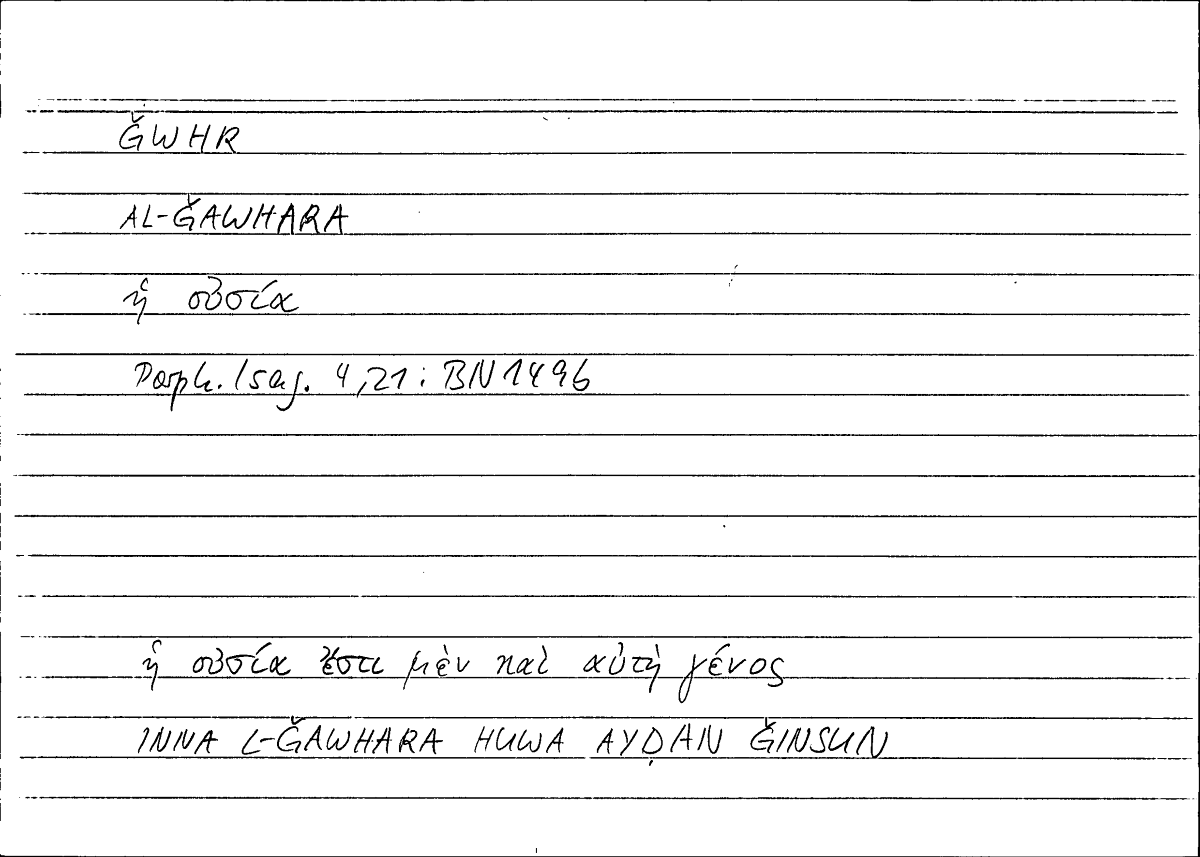 ǦWHR
AL-ǦAWHARA
ἡ οὐσία
Porph. Isag. 4,21: BN1496
ἡ οὐσία ἔστι μὲν καὶ αὐτὴ γένος
INNA L-ǦAWHARA HUWA AYḌAN ǦINSUN